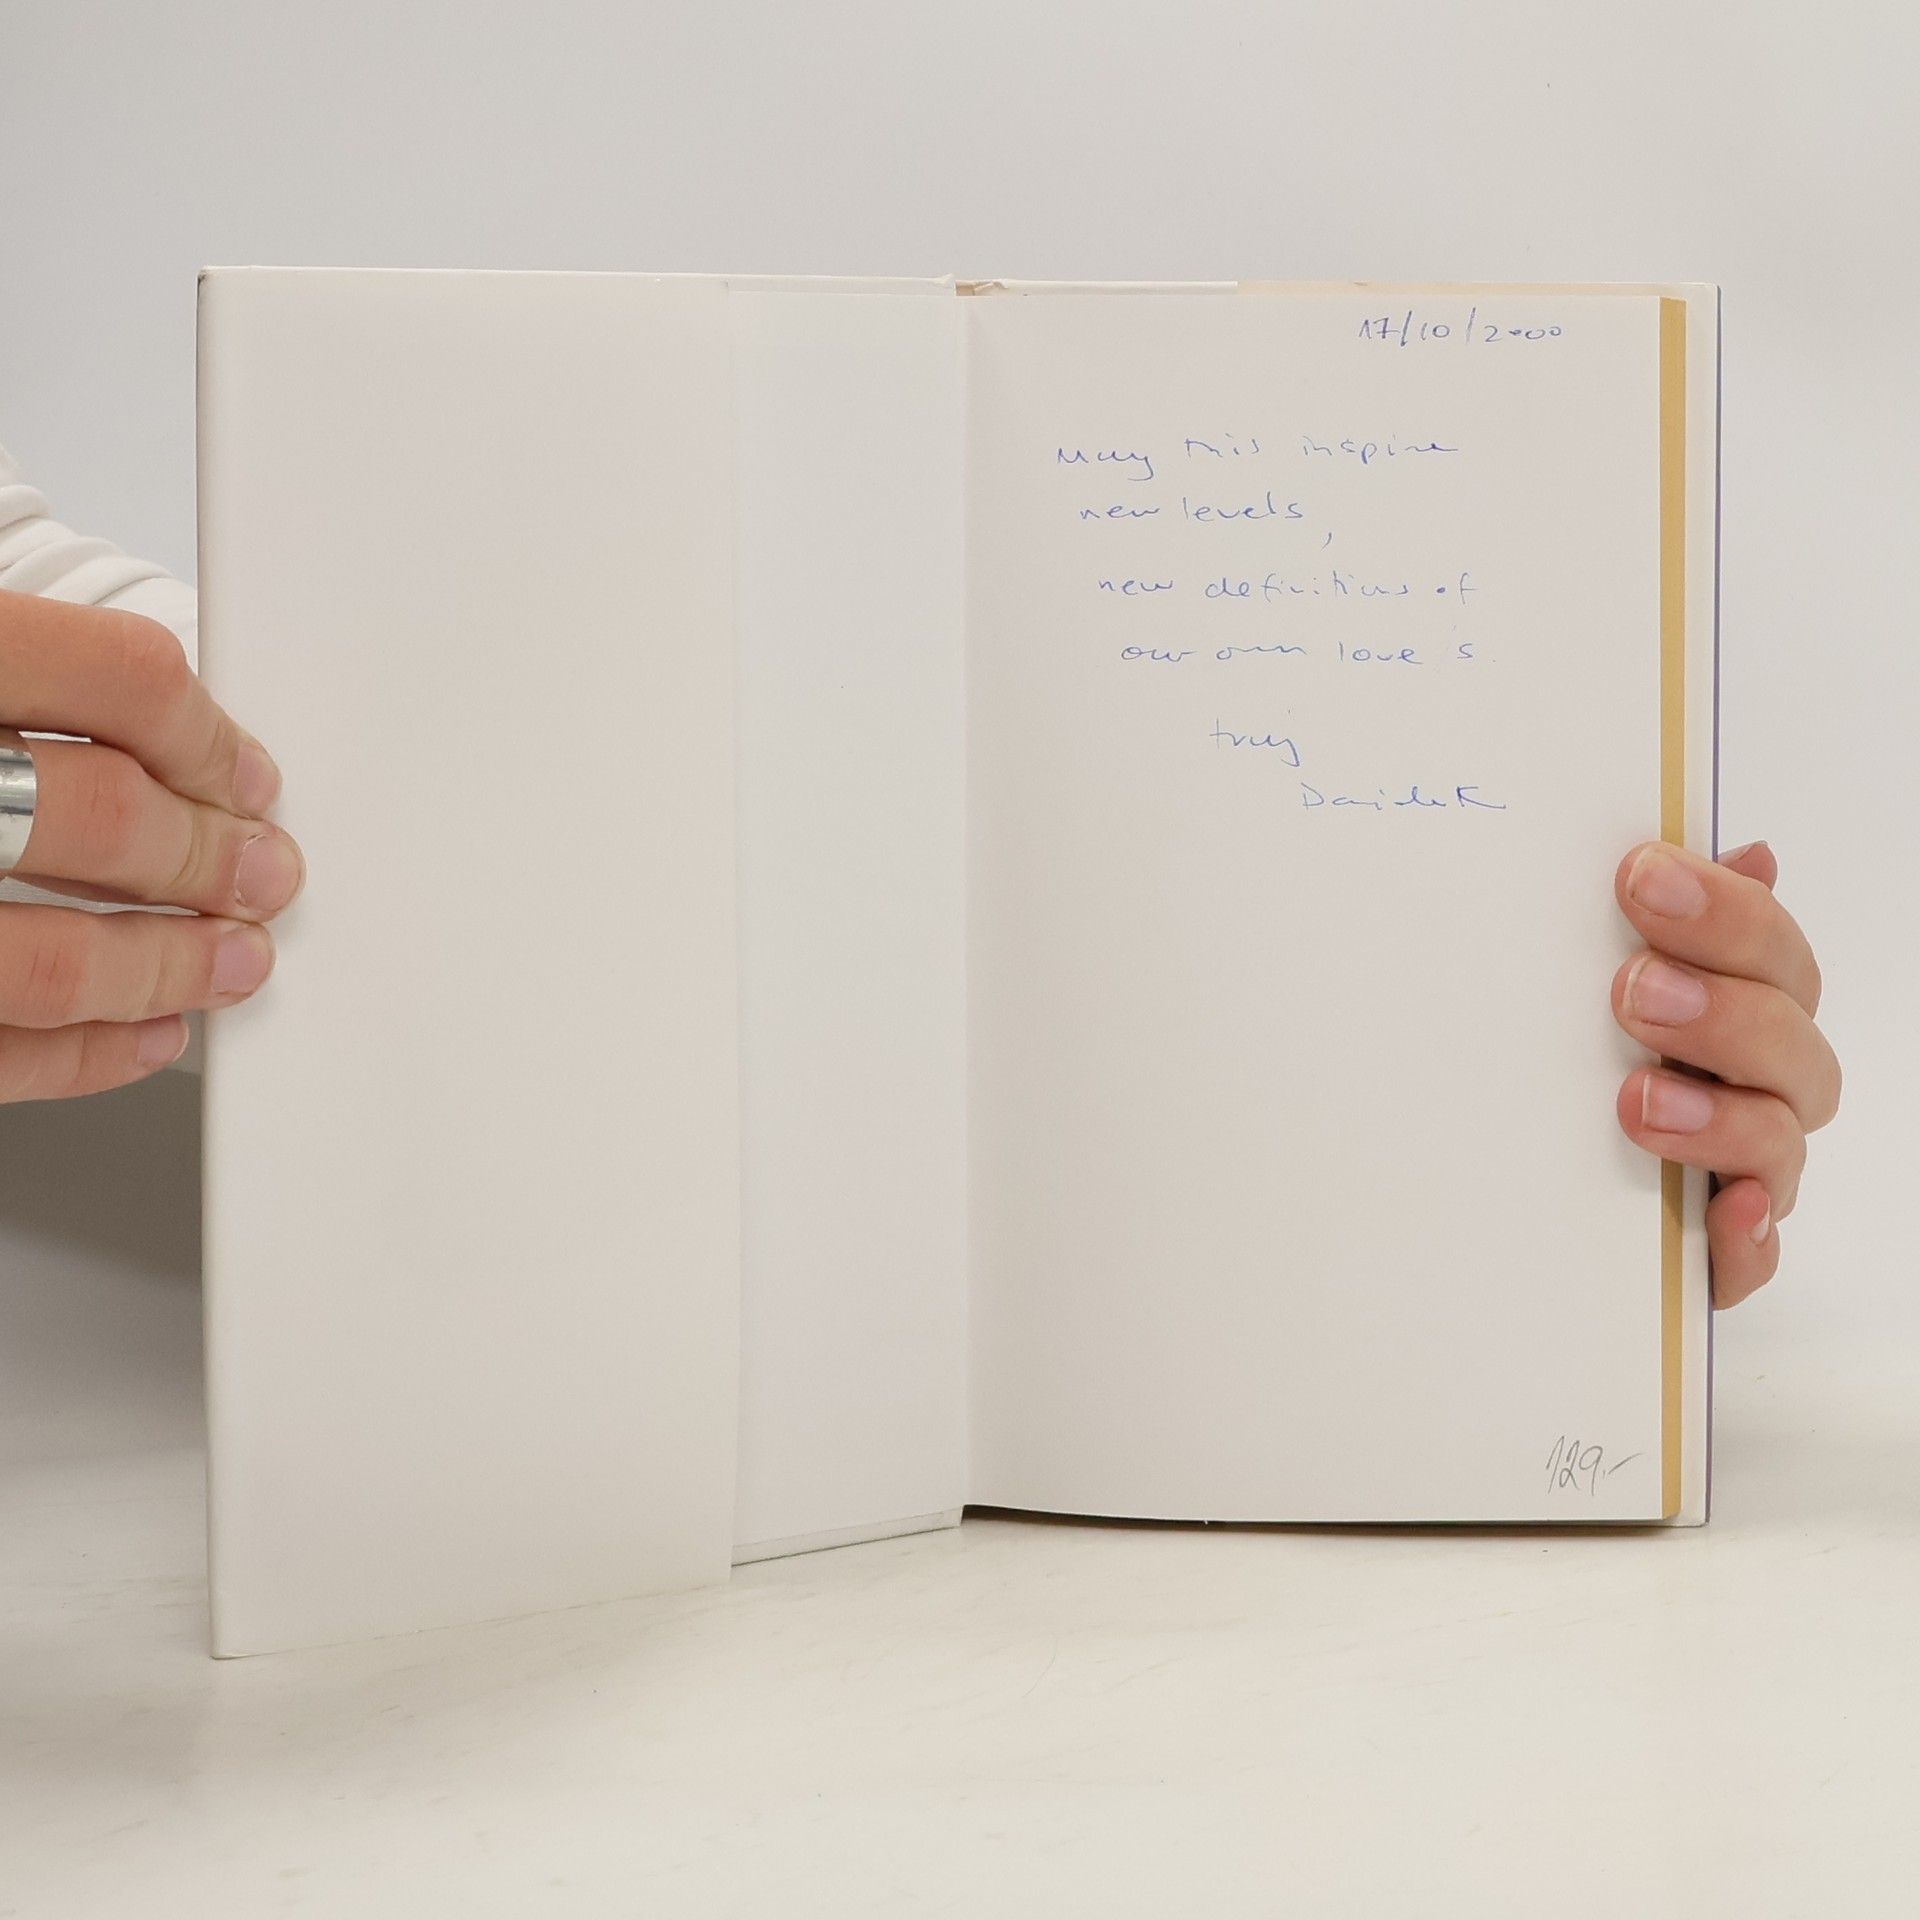 17/10/2000
May this inspire
new levels,
new definitions of
our own love's.
truly
129.-